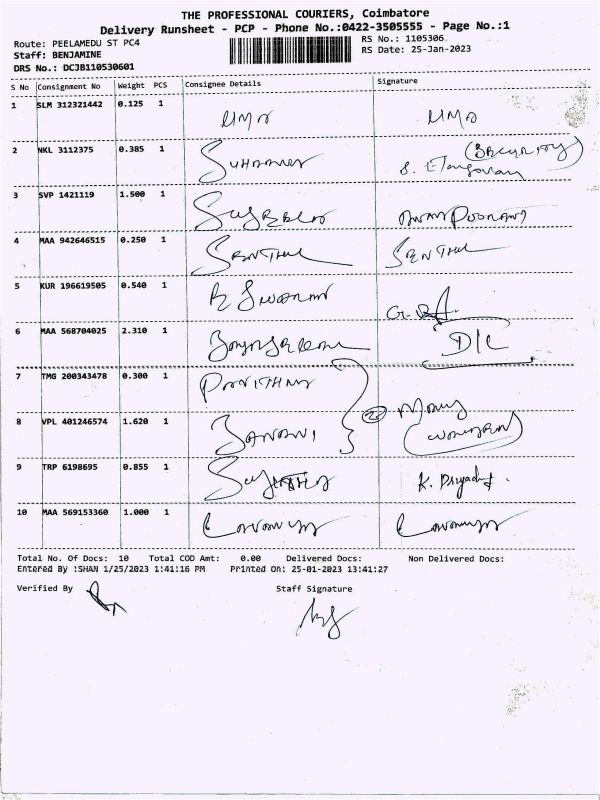 THE PROFESSIONAL COURIERS, Coimbatore
Delivery Runsheet - PCP - Phone No.:0422-3505555 - Page No.:1
Route: PEELAMEDU ST PC4
RS No.: 1105306
Staff: BENJAMINE
RS Date: 25-Jan-2023
DRS No.: DCJB110530601
S No Consignment No Weight PCS Consignee Details Signature
1 SLM 312321442 0.125 1 UMA UMA
2 NKL 3112375 0.385 1
S. Elangovan
3 SVP 1421119 1.500 1
4 MAA 942646515 0.250 1 SENTHIL SENTHIL
5 KUR 196619505 0.540 1
6 MAA 568704025 2.310 1 D/C
7 TMG 200343478 0.300 1 PAVITHRA
8 VPL 401246574 1.620 1
9 TRP 6198695 0.855 1 SUJATHA
10 MAA 569153360 1.000 1 Lavanya Lavanya
Total No. Of Docs: 10 Total COD Amt: 0.00 Delivered Docs: Non Delivered Docs:
Entered By :SHAN 1/25/2023 1:41:16 PM Printed On: 25-01-2023 13:41:27
Verified By Staff Signature